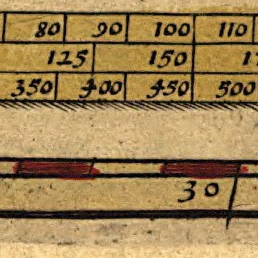 80 90 100 110
125 150 1
350 400 450 500
30